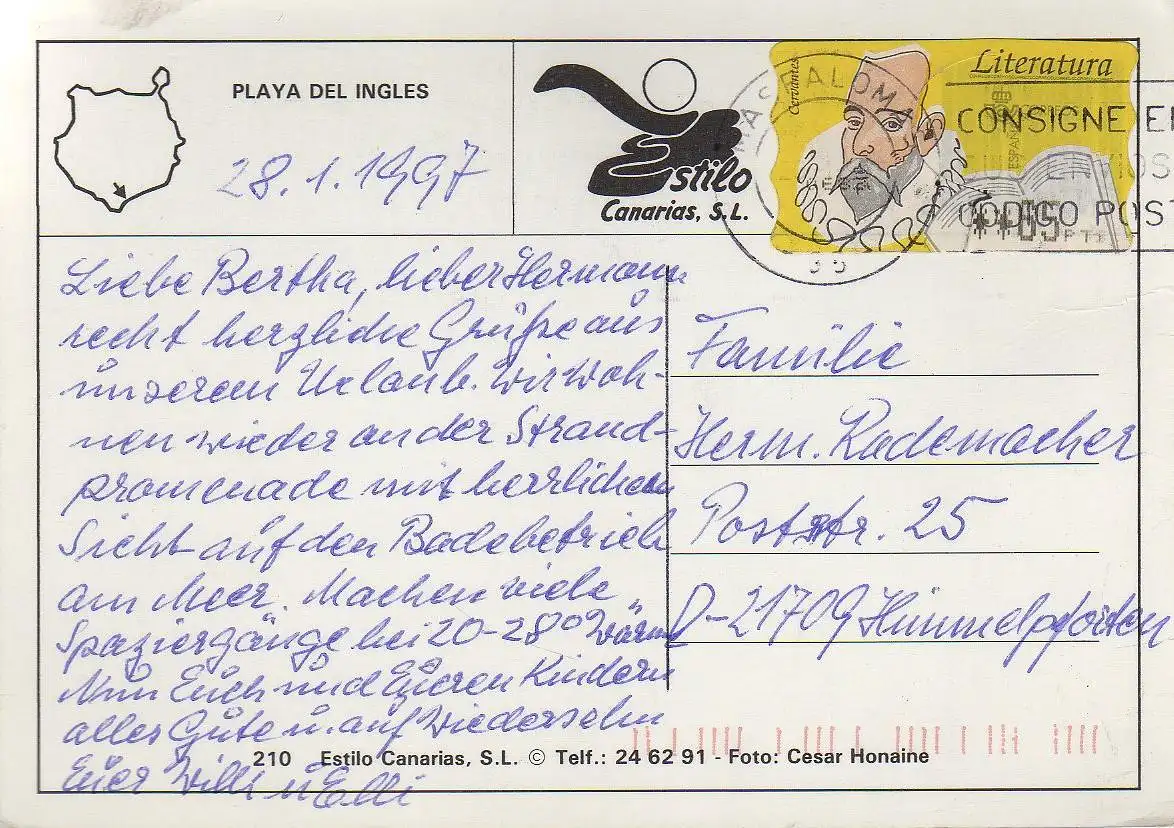 PLAYA DEL INGLES
28.1.1997
Estilo
Canarias, S.L.
Cervantes
Literatura
CORREOS
ESPAÑA
MASPALOMA
35
CONSIGNE E
ENVIOS
CODIGO POST
**65 PTS
Liebe Bertha, lieber Hermann
recht herzliche Grüße aus
unserem Urlaub. Wir woh-
nen wieder an der Strand-
promenade mit herrlichem
Sicht auf den Badebetrieb
am Meer. Machen viele
Spaziergänge bei 20-28° Wärme
Nun Euch und Eueren Kindern
alles Gute u. auf Wiedersehn
Euer Willi u Elli
Familie
Herm. Rademacher
Poststr. 25
D-21709 Himmelpforten
210 Estilo Canarias, S.L. © Telf.: 24 62 91 - Foto: Cesar Honaine